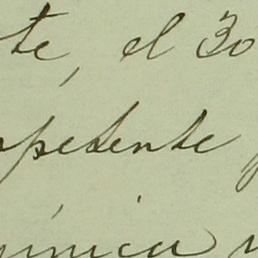 te, el 30
mpetente
ímica